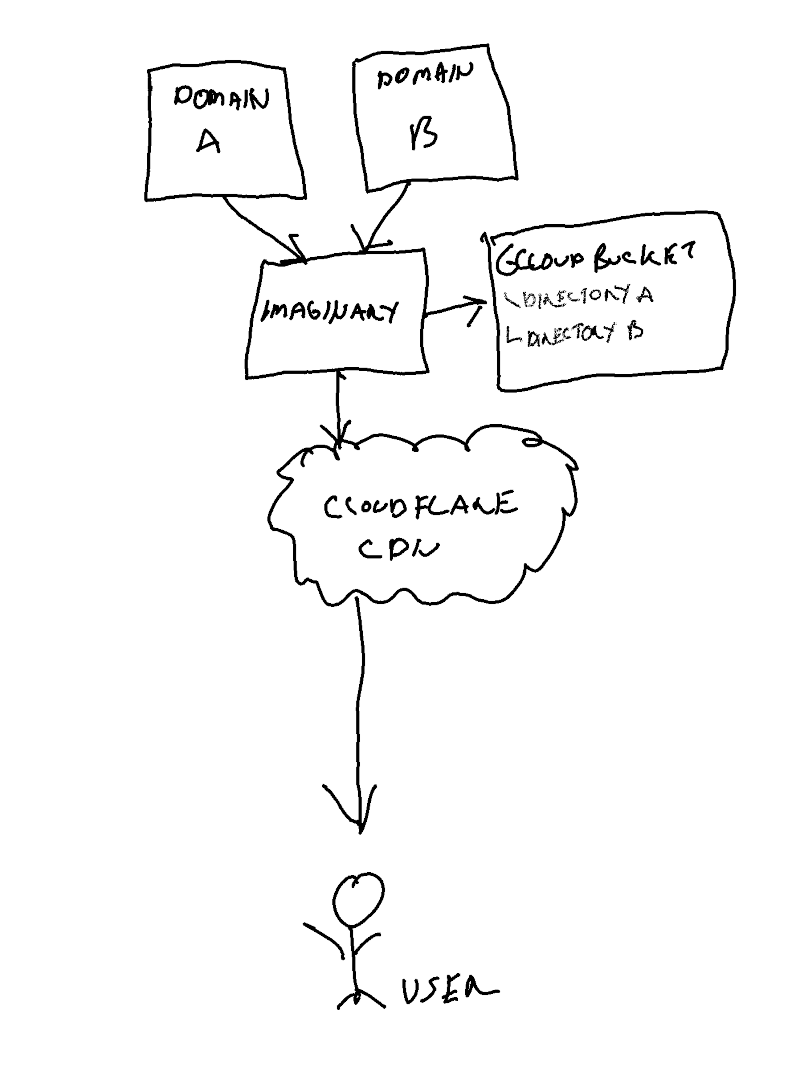 DOMAIN
A
DOMAIN
B
IMAGINARY
GCLOUD BUCKET
DIRECTORY A
DIRECTORY B
CLOUDFLARE
CDN
USER